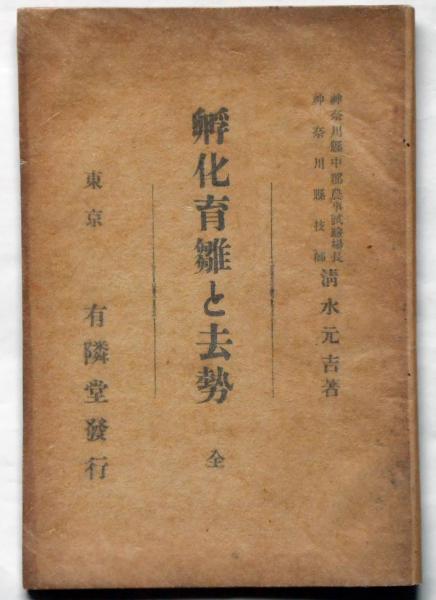 神奈川縣中郡農事試驗場長
神奈川縣技師
淸水元吉著
孵化育雛と去勢 全
東京 有隣堂發行